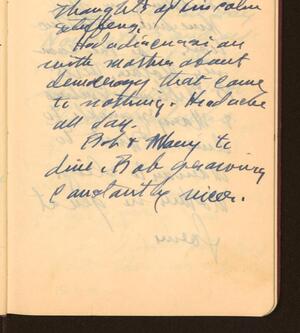 thoughts of Lincoln
Had a discussion
with mother about
democracy that came
to nothing. Headache
all day.
Bob & Mary to
dine. Bob growing
constantly nicer.